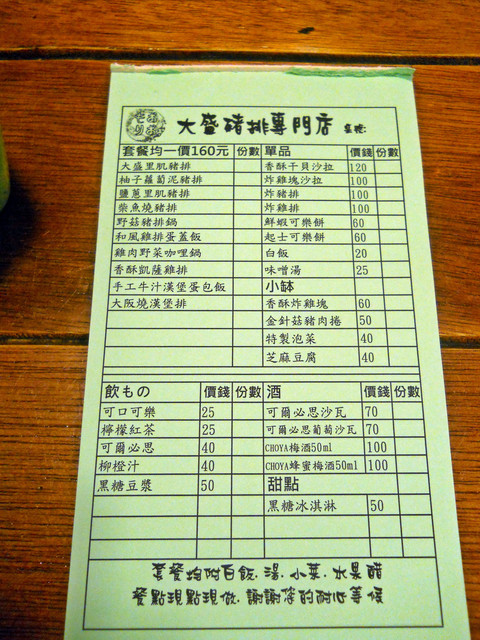 おお
もり
大盛豬排專門店 桌號:
套餐均一價160元 份數 單品 價錢 份數
大盛里肌豬排 香酥干貝沙拉 120
柚子蘿蔔泥豬排 炸雞塊沙拉 100
鹽蔥里肌豬排 炸豬排 100
柴魚燒豬排 炸雞排 100
野菇豬排鍋 鮮蝦可樂餅 60
和風雞排蛋蓋飯 起士可樂餅 60
雞肉野菜咖哩鍋 白飯 20
香酥凱薩雞排 味噌湯 25
手工牛汁漢堡蛋包飯 小缽
大阪燒漢堡排 香酥炸雞塊 60
金針菇豬肉捲 50
特製泡菜 40
芝麻豆腐 40
飲もの 價錢 份數 酒 價錢 份數
可口可樂 25 可爾必思沙瓦 70
檸檬紅茶 25 可爾必思葡萄沙瓦 70
可爾必思 40 CHOYA梅酒50ml 100
柳橙汁 40 CHOYA蜂蜜梅酒50ml 100
黑糖豆漿 50 甜點
黑糖冰淇淋 50
套餐均附白飯.湯.小菜.水果醋
餐點現點現做.謝謝您的耐心等候